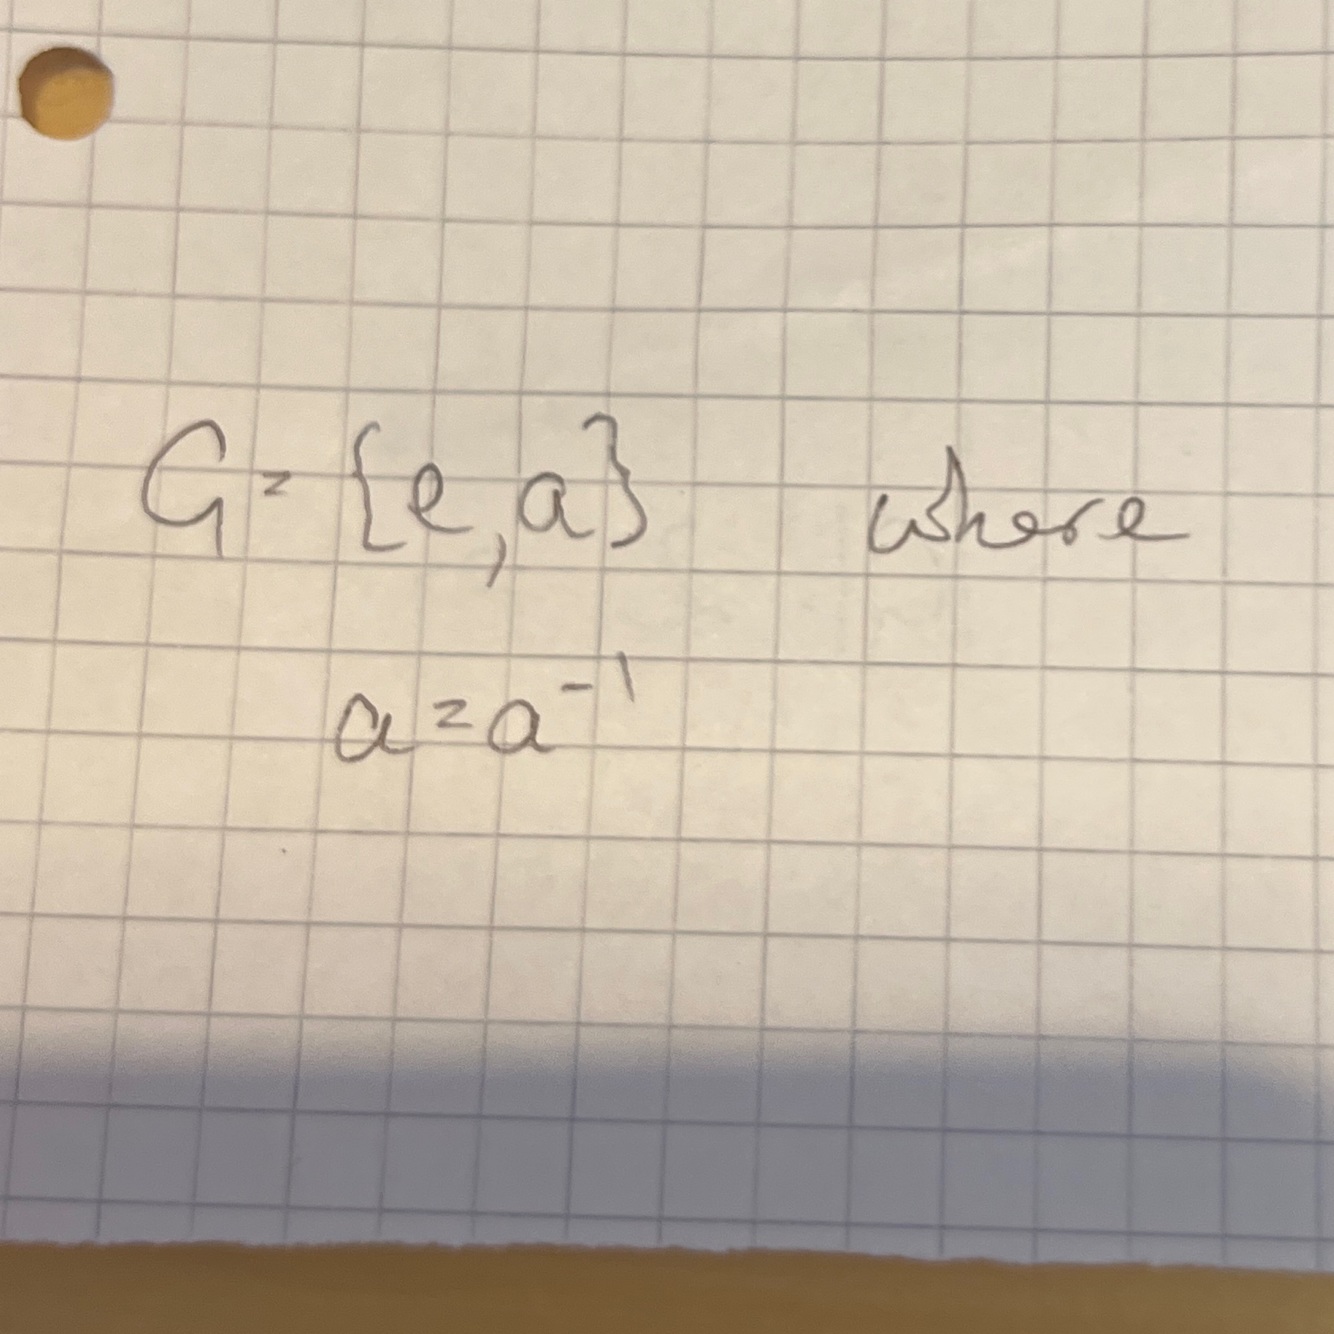 G = {e, a} where
a = a⁻¹